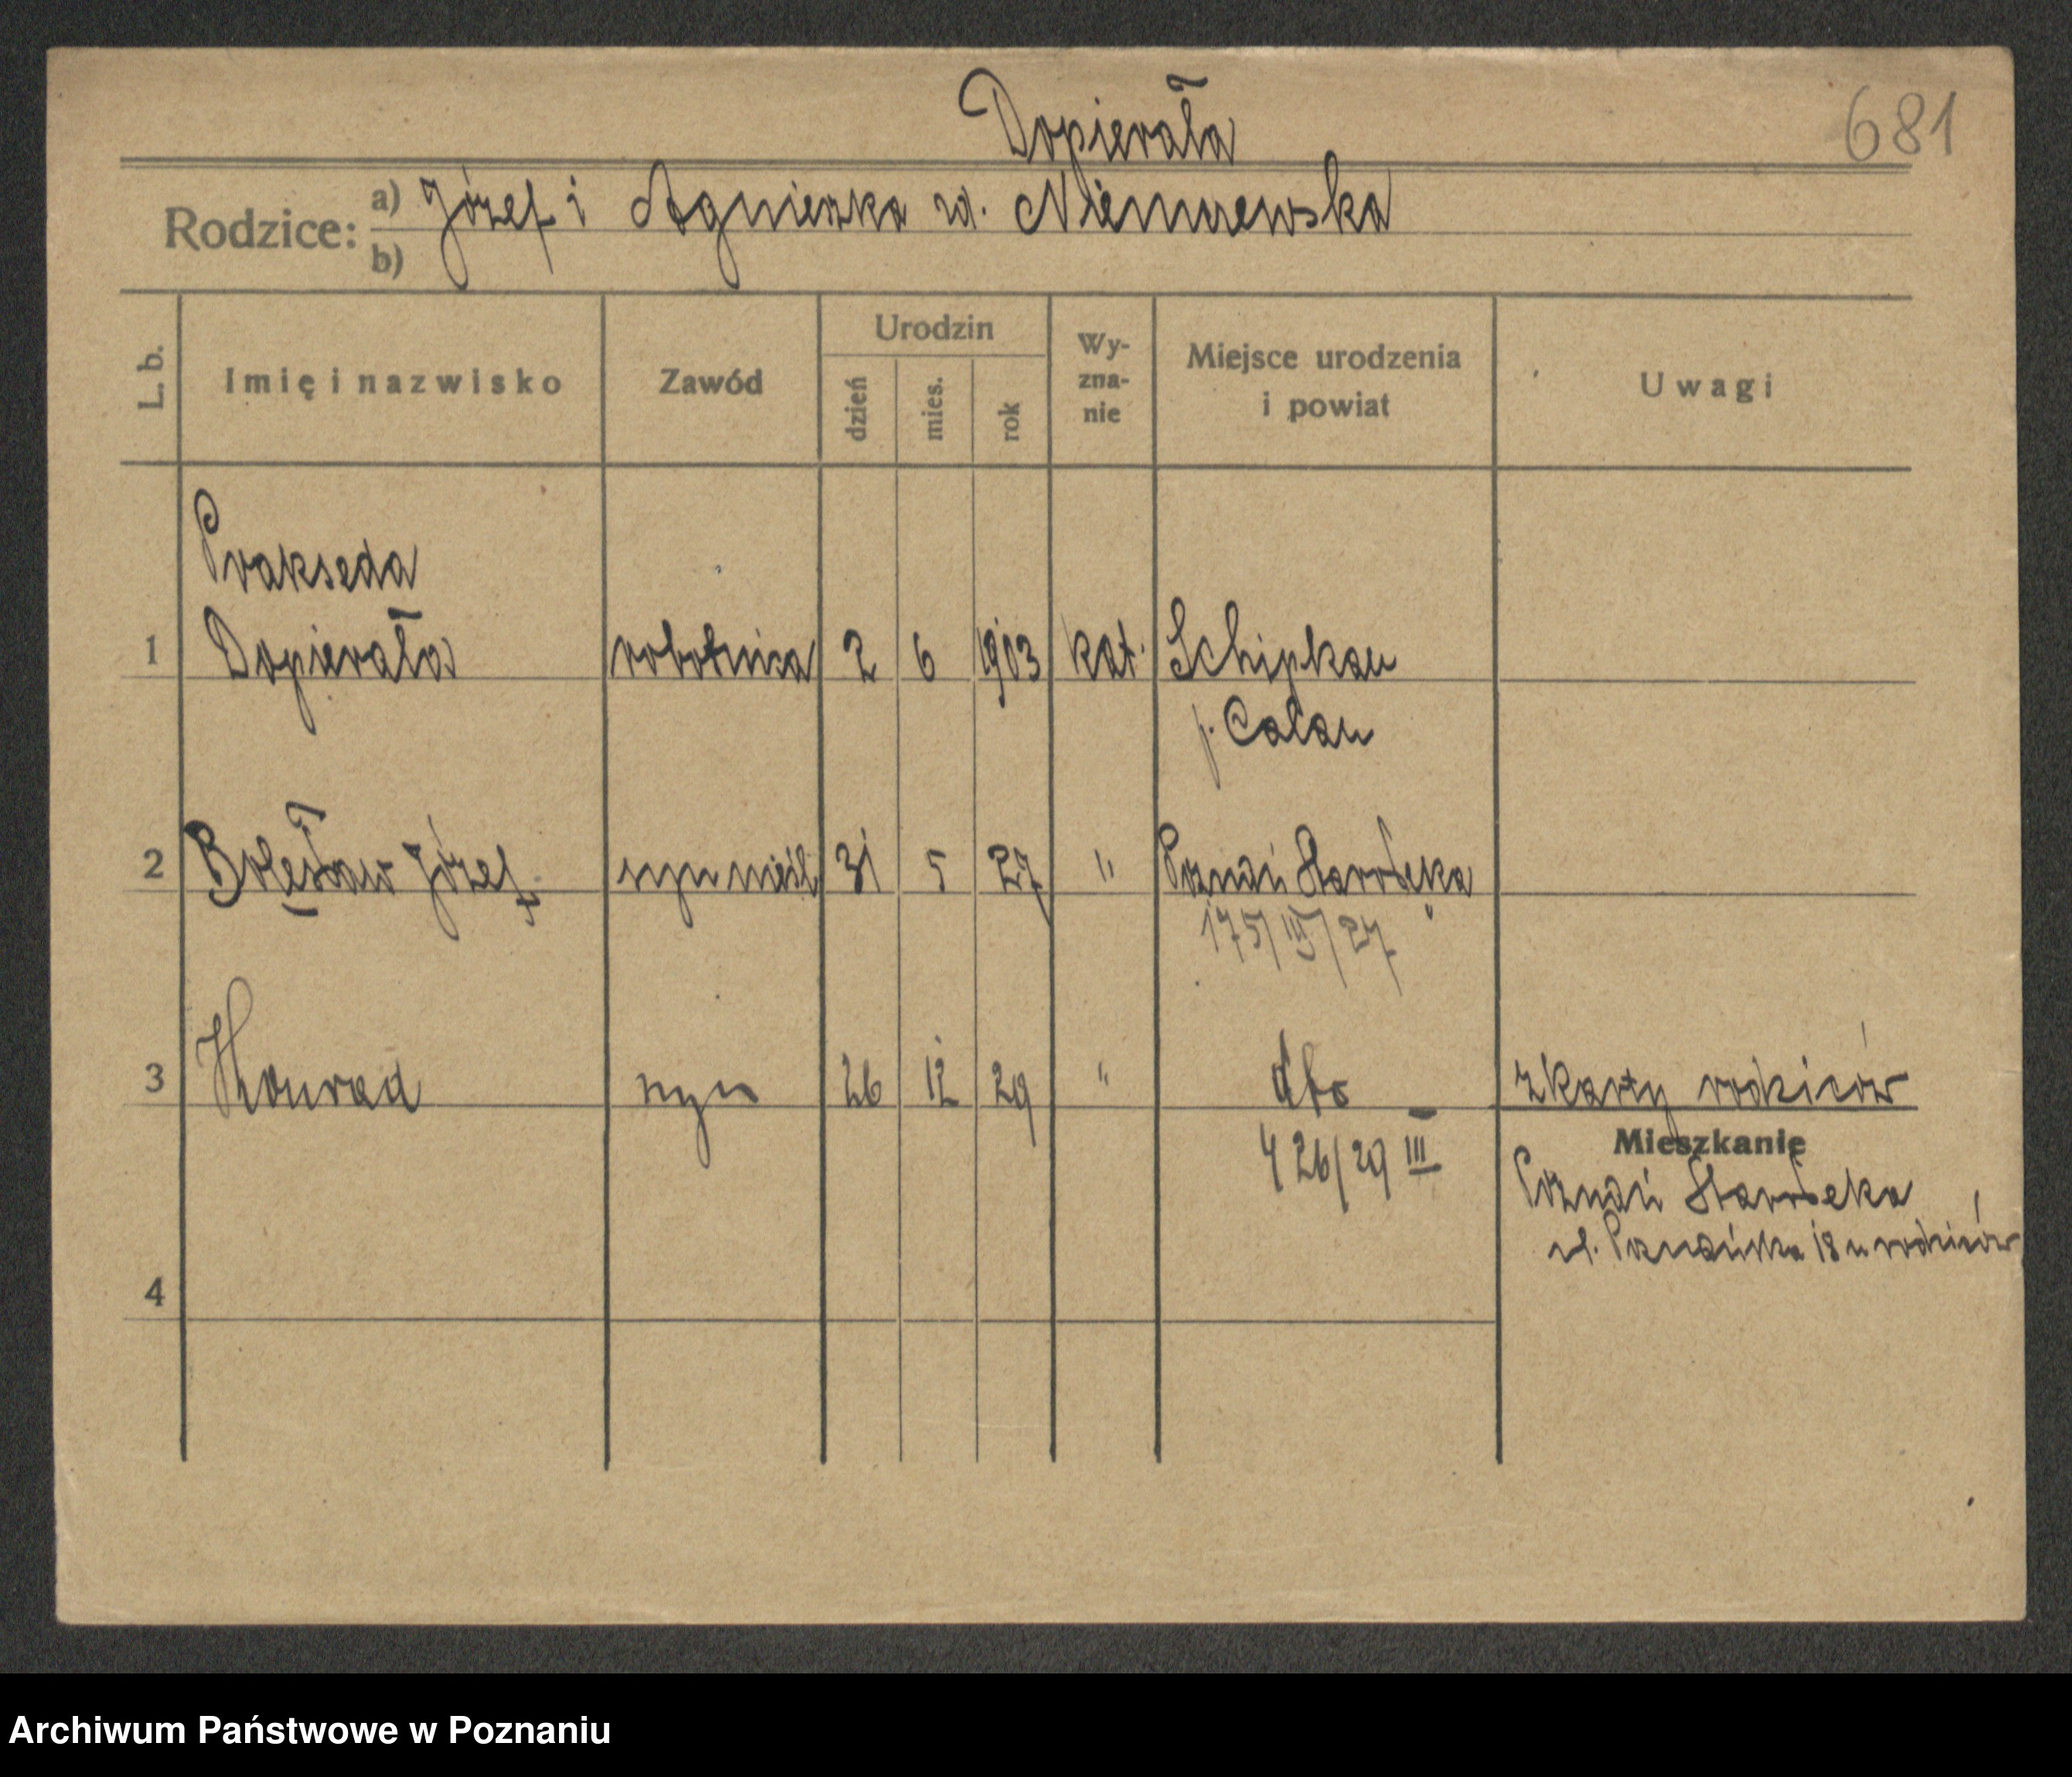 Dopierała
681
Rodzice: a) Józef i Agnieszka zd. Niemczewska
b)
L. b. Imię i nazwisko Zawód Urodzin dzień mies. rok Wy-zna-nie Miejsce urodzenia i powiat Uwagi
Prakseda
1 Dopierała robotnica 2 6 1903 kat. Schipkau
p. Calau
2 Bolesław Józef syn nieśl 31 5 27 " Poznań Starołęka
175/III/27
3 Konrad syn 26 12 29 " dto z karty rodziców
426/29 III
Mieszkanie
Poznań Starołęka
ul. Poznańska 18 u rodziców
4
Archiwum Państwowe w Poznaniu